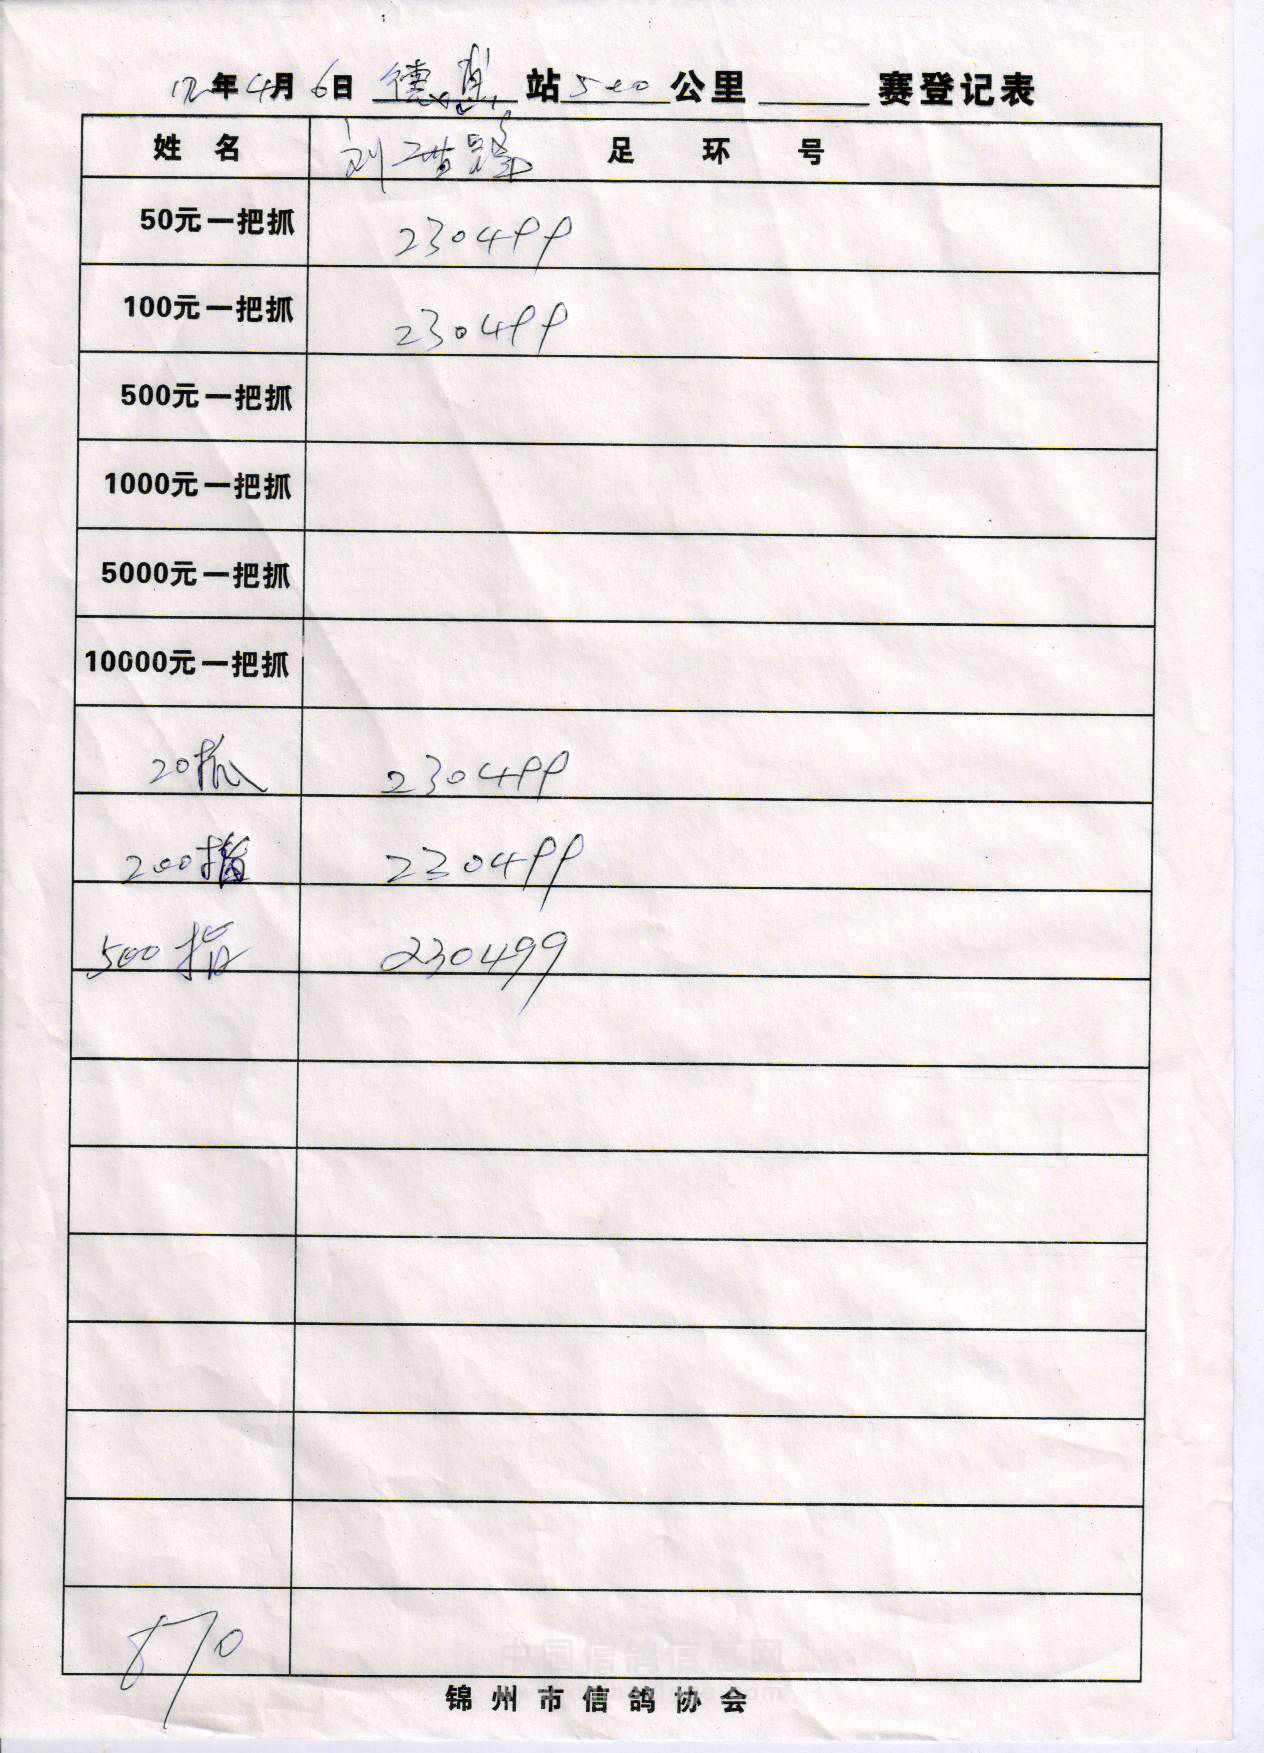 12年4月6日 德惠 站 500 公里 赛登记表
姓 名 刘 足 环 号
50元一把抓 230499
100元一把抓 230499
500元一把抓
1000元一把抓
5000元一把抓
10000元一把抓
20抓 230499
200指 230499
500指 230499
870
中国信鸽信息网
锦州市信鸽协会